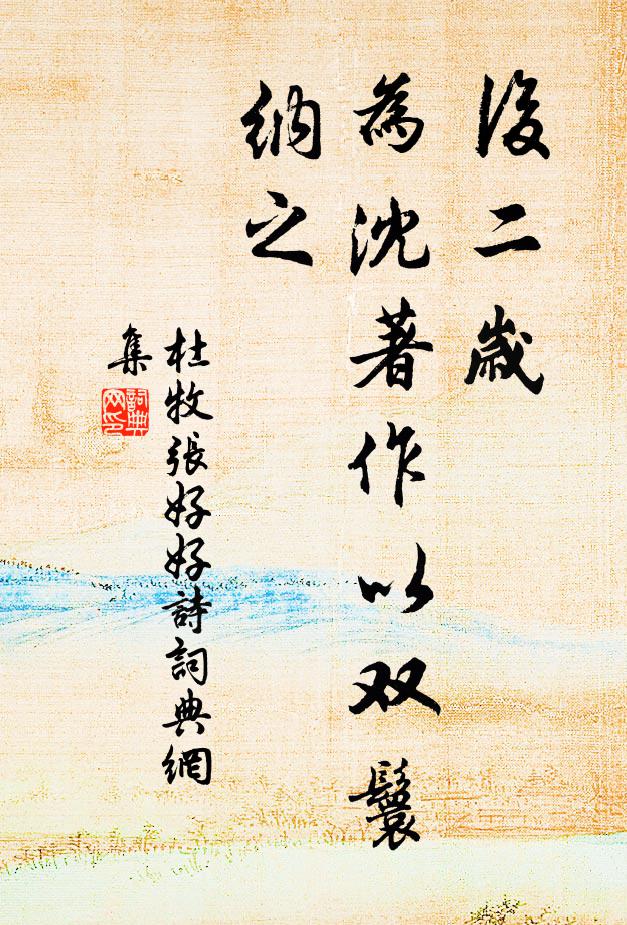 後二歲
為沈著作以双鬟
納之
杜牧張好好詩詞典網
集
詞典
网印